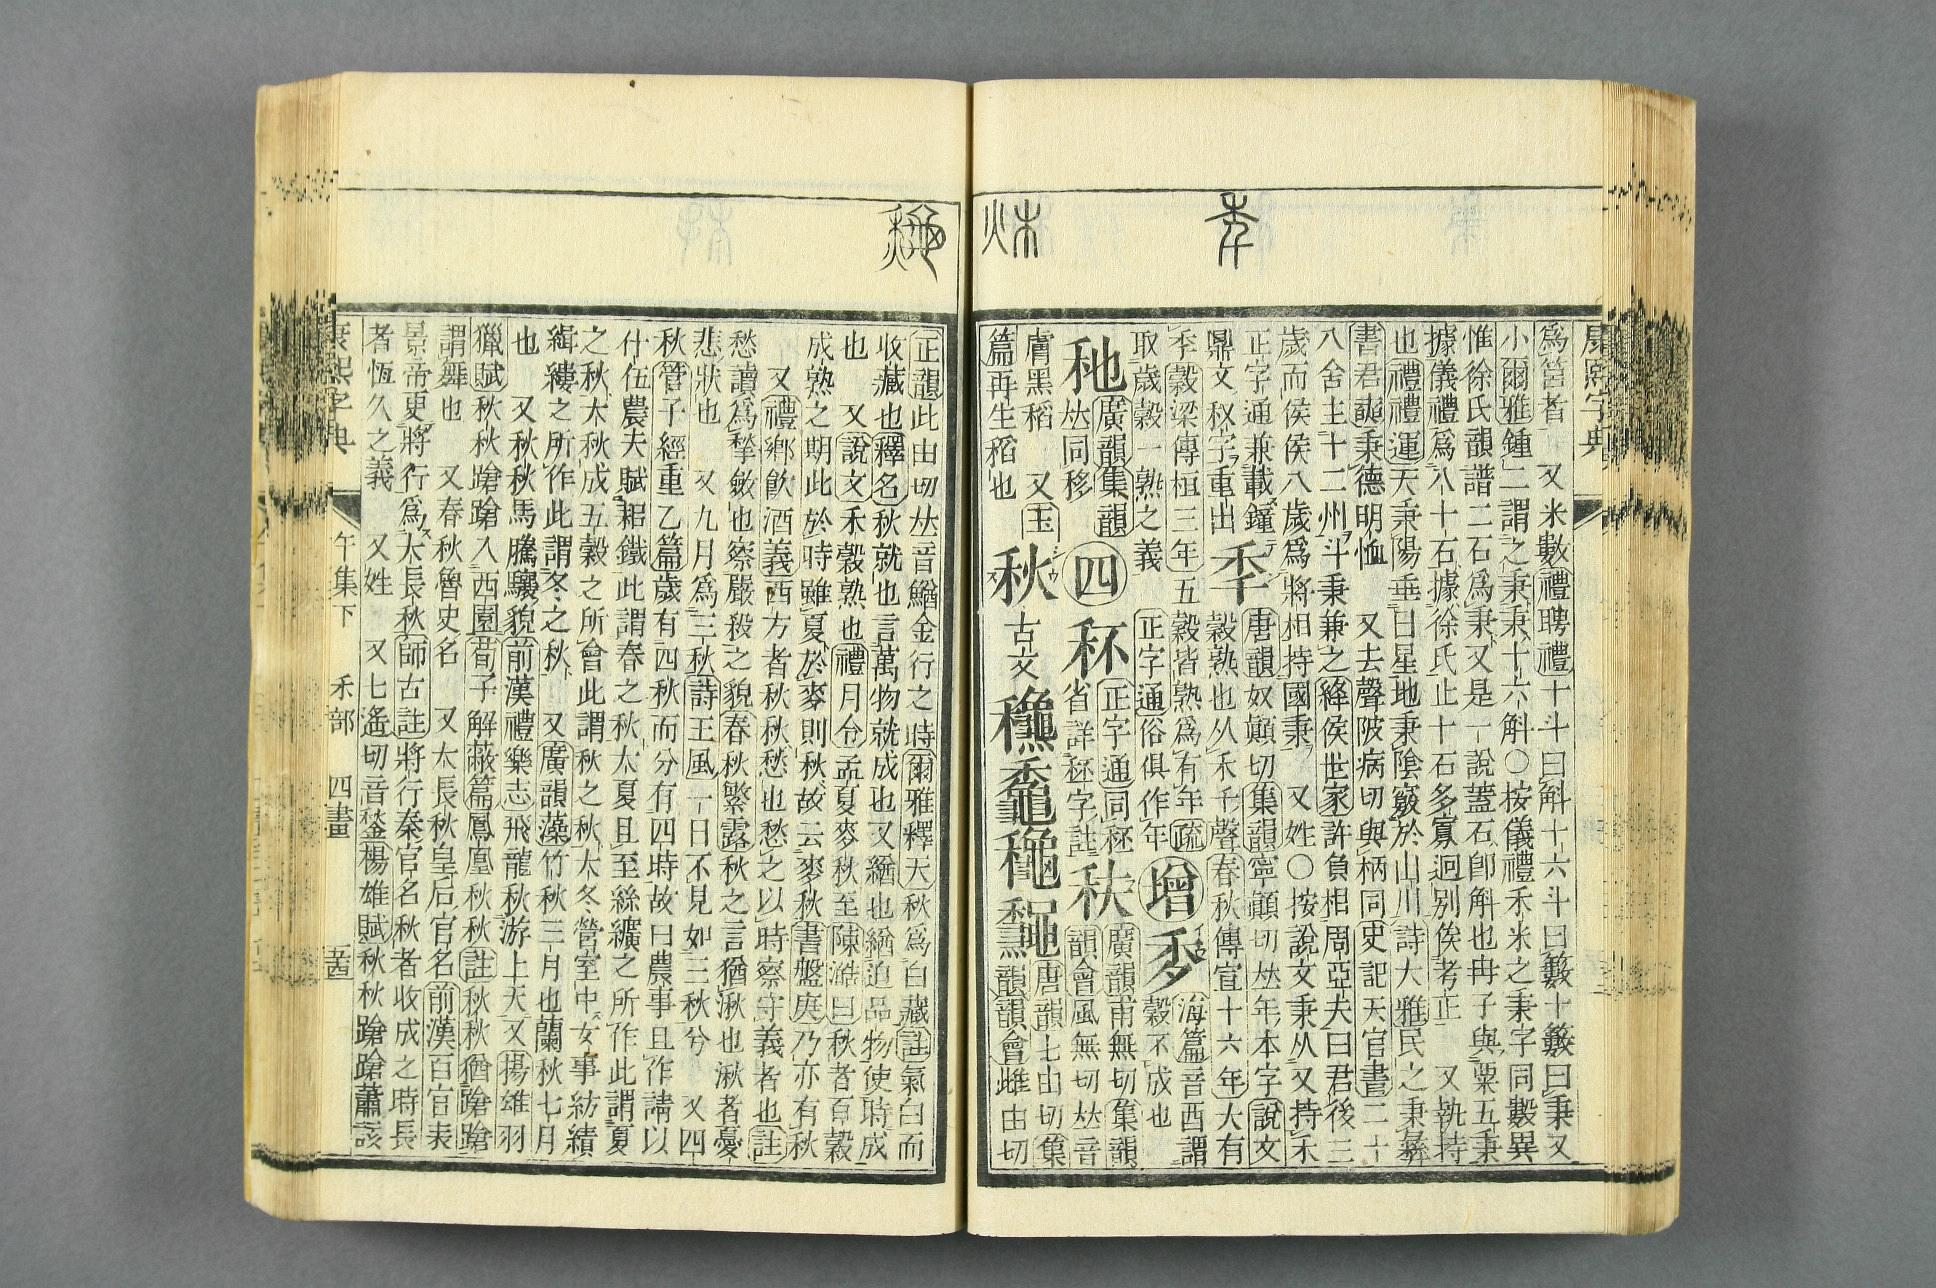 秊
秋
康熙字典
爲筥者 又米數禮聘禮十斗曰斛十六斗曰籔十籔曰秉又
小爾雅鍾二謂之秉秉十六斛○按儀禮禾米之秉字同數異
惟徐氏韻譜二石爲秉又是一說蓋石卽斛也冉子與粟五秉
據儀禮爲八十石據徐氏止十石多寡迥別俟考正 又執持
也禮禮運天秉陽垂日星地秉陰竅於山川詩大雅民之秉彝
書君奭秉德明恤 又去聲陂病切與柄同史記天官書二十
八舍主十二州斗秉兼之絳侯世家許負相周亞夫曰君後三
歲而侯侯八歲爲將相持國秉 又姓○按說文秉从又持禾
正字通兼載鐘
鼎文秉字重出
季
唐韻奴顚切集韻寧顚切𠀤年本字說文
穀熟也从禾千聲春秋傳宣十六年大有
季穀梁傳桓三年五穀皆熟爲有年疏
取歲穀一熟之義 正字通俗俱作年
增
海篇音酉謂
穀不成也
廣韻集韻
𠀤同移
四
秠
正字通同秠
省詳秠字註
廣韻甫無切集韻
韻會風無切𠀤音
膚黑稻 又玉
篇再生稻也
秋
古文
唐韻七由切集
韻韻會雌由切
正韻此由切𠀤音鰌金行之時爾雅釋天秋爲白藏註氣白而
收藏也釋名秋就也言萬物就成也又緧也緧迫品物使時成
也 又說文禾穀熟也禮月令孟夏麥秋至陳澔曰秋者百穀
成熟之期此於時雖夏於麥則秋故云麥秋書盤庚乃亦有秋
又禮鄉飮酒義西方者秋秋愁也愁之以時察守義者也註
愁讀爲揫斂也察嚴殺之貌春秋繁露秋之言猶湫也湫者憂
悲狀也 又九月爲三秋詩王風一日不見如三秋兮 又四
秋管子經重乙篇歲有四秋而分有四時故曰農事且作請以
什伍農夫賦耜鐵此謂春之秋大夏且至絲纊之所作此謂夏
之秋大秋成五穀之所會此謂秋之秋大冬營室中女事紡績
緝縷之所作此謂冬之秋 又廣韻藻竹秋三月也蘭秋七月
也 又秋秋馬騰驤貌前漢禮樂志飛龍秋游上天又揚雄羽
獵賦秋秋蹌蹌入西園荀子解蔽篇鳳凰秋秋註秋秋猶蹌蹌
謂舞也 又春秋魯史名 又大長秋皇后官名前漢百官表
景帝更將行爲大長秋師古註將行秦官名秋者收成之時長
者恆久之義 又姓 又七遙切音䥝楊雄賦秋秋蹌蹌蕭該
康熙字典
午集下 禾部 四畫